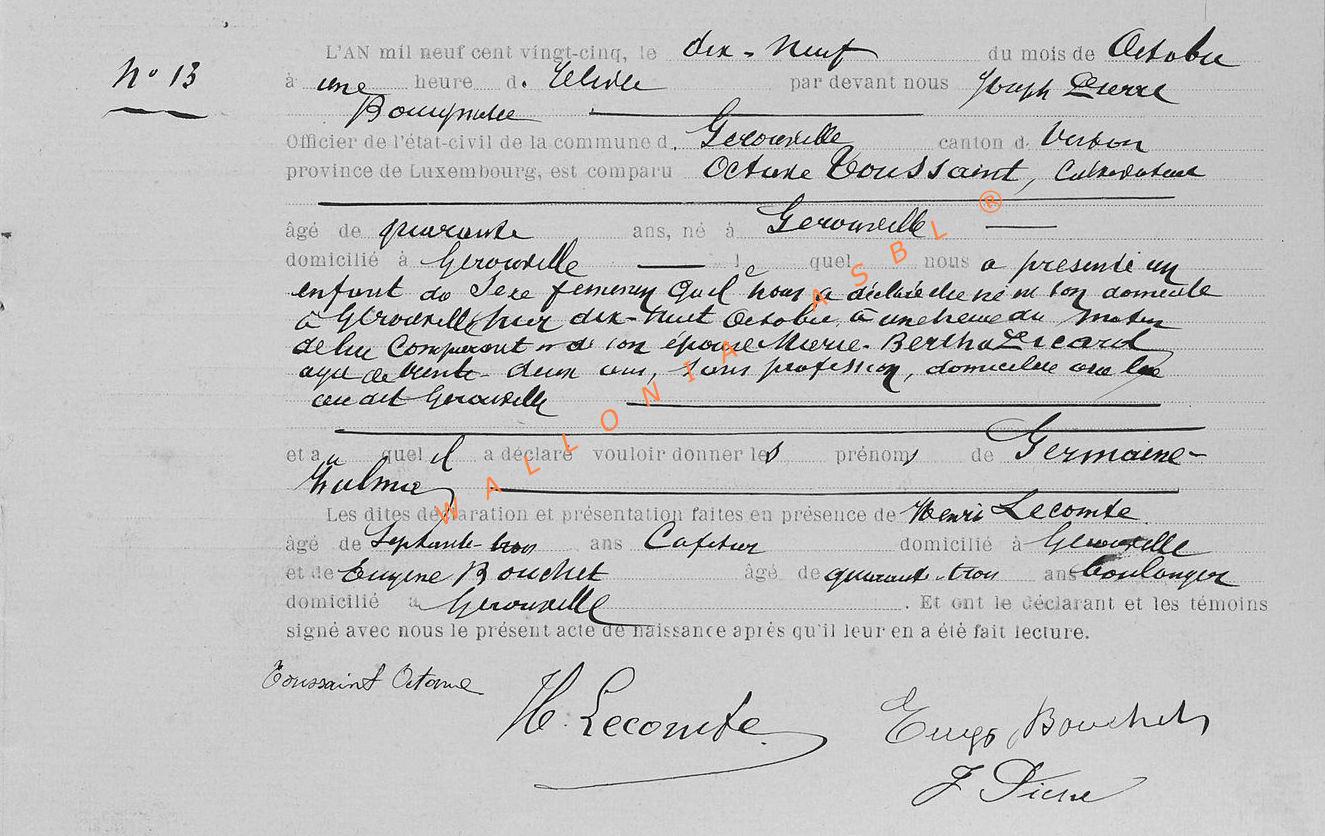 No 13
L'AN mil neuf cent vingt-cinq, le dix-neuf du mois de Octobre
à une heure d. par devant nous Joseph Pierre
Officier de l'état-civil de la commune d. Gerouville canton d. Virton
province de Luxembourg, est comparu Octave Toussaint, Cultivateur
âgé de quarante ans, né à Gerouville
domicilié à Gerouville le quel nous a présenté un
enfant du Sexe feminin qu'il nous a déclaré être né en son domicile
à Gerouville, hier dix-huit Octobre, à une heure du matin
de lui Comparant et de son épouse Marie-Bertha
agée de trente-deux ans, sans profession, domiciliée avec lui
au dit Gerouville
et au quel il a déclaré vouloir donner les prénoms de Germaine-
Zulma
Les dites déclaration et présentation faites en présence de Henri Lecomte
âgé de Septante-trois ans Cafetier domicilié à Gerouville
et de Eugène Bouchet âgé de quarante-trois ans boulanger
domicilié à Gerouville. Et ont le déclarant et les témoins
signé avec nous le présent acte de naissance après qu'il leur en a été fait lecture.
Toussaint Octave
H. Lecomte
Eug Bouchet
J Pierre
WALLONIA ASBL ®